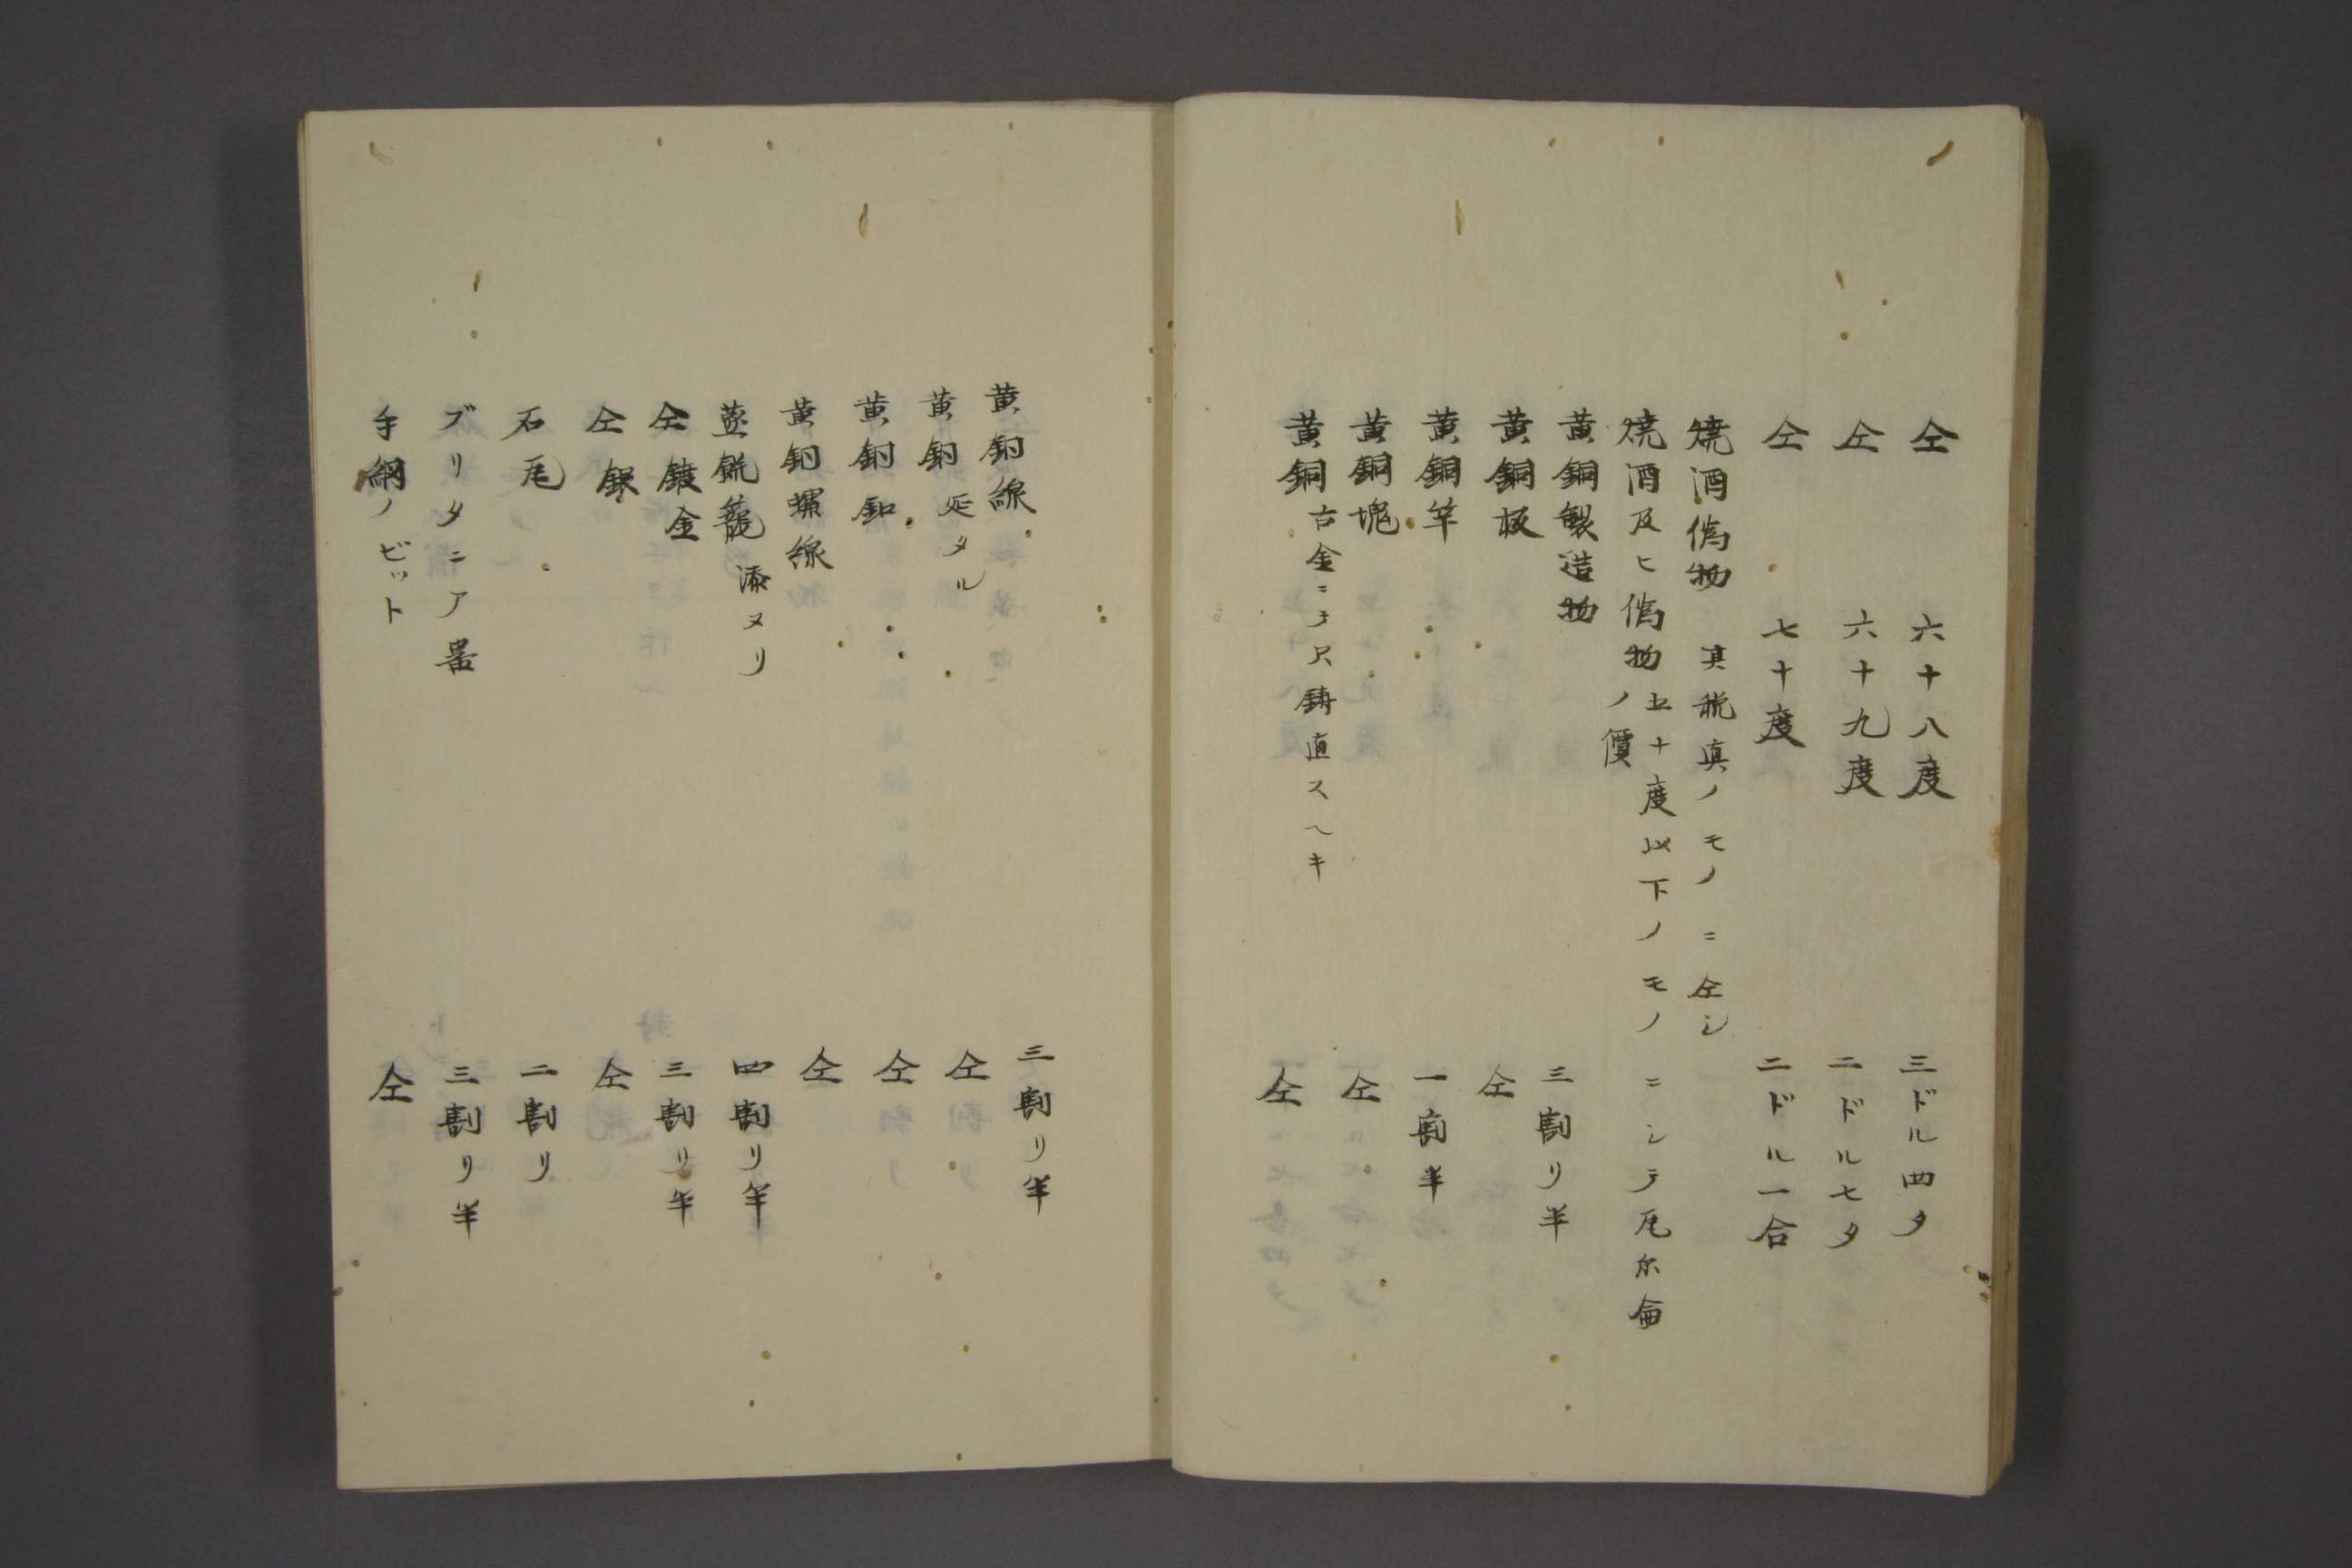 仝 六十八度 三ドル四タ
仝 六十九度 二ドル七タ
仝 七十度 二ドル一合
焼酒偽物 其税真ノモノニ仝シ
焼酒及ヒ偽物 五十度以下ノモノニシテ瓦尓侖
ノ價
黄銅製造物 三割リ半
黄銅板 仝
黄銅竿 一割半
黄銅塊 仝
黄銅 古金ニテ只鋳直スヘキ 仝
黄銅線 三割リ半
黄銅 延タル 仝
黄銅釦 仝
黄銅螺線 仝
籠 漆ヌリ 四割リ半
仝鍍金 三割リ半
仝銀 仝
石瓦 二割リ
ブリタニア畧 三割リ半
手綱ノビット 仝